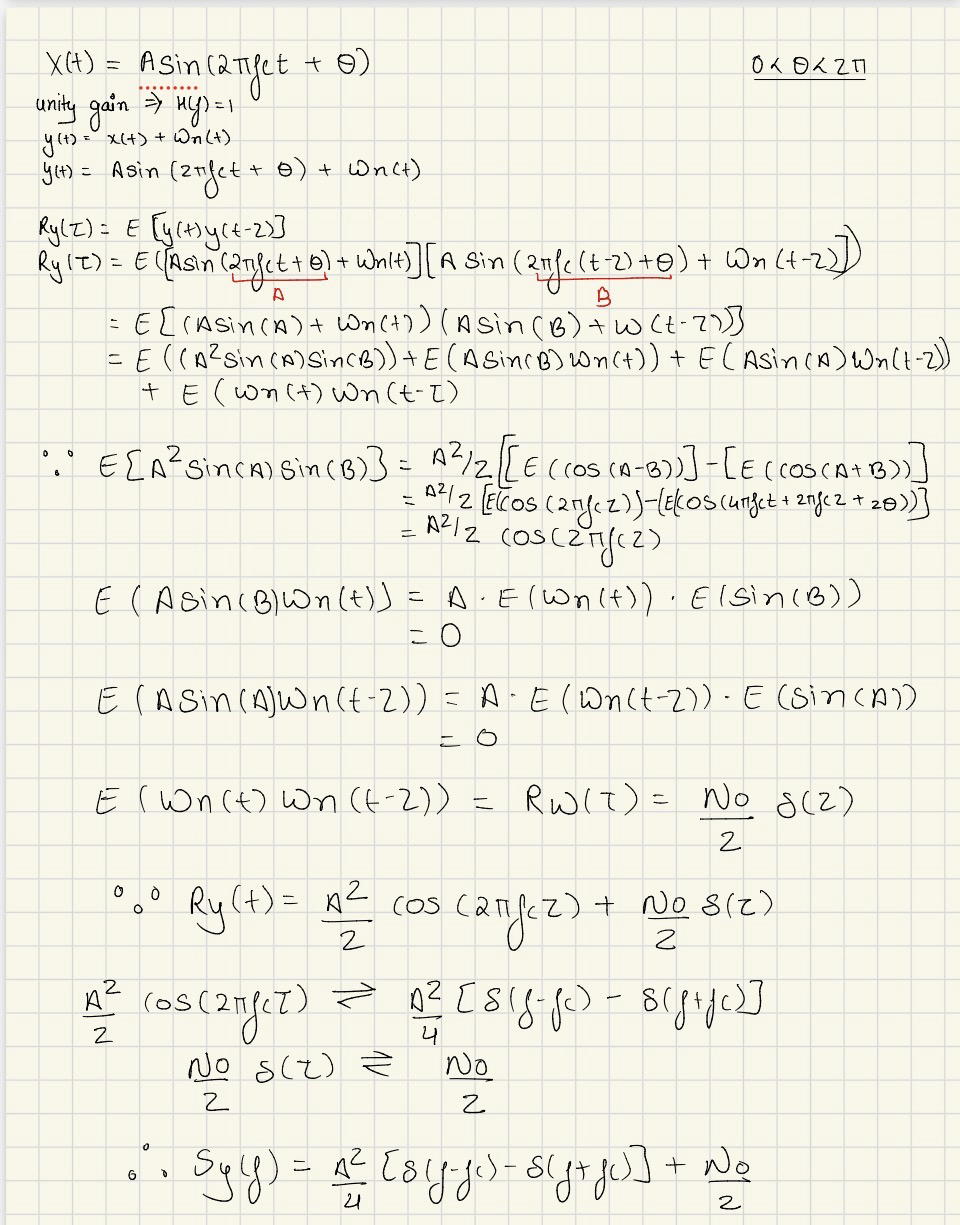 X(t) = A sin(2πfct + θ) 0 < θ < 2π
unity gain ⇒ H(f) = 1
y(t) = x(t) + Wn(t)
y(t) = A sin (2πfct + θ) + Wn(t)
Ry(τ) = E [y(t)y(t-2)]
Ry(τ) = E([A sin(2πfct + θ) + Wn(t)][A sin (2πfc(t-2) + θ) + Wn(t-2)])
A B
= E[(A sin(A) + Wn(t))(A sin(B) + W(t-2))]
= E((A² sin(A) sin(B)) + E(A sin(B) Wn(t)) + E(A sin(A) Wn(t-2))
+ E (Wn(t) Wn(t-τ)
∵ E[A² sin(A) sin(B)] = A²/2 [[E(cos(A-B))] - [E(cos(A+B))]
= A²/2 [E(cos(2πfc2)] - [E(cos(4πfct + 2πfc2 + 2θ))]
= A²/2 cos(2πfc2)
E (A sin(B) Wn(t)) = A · E(Wn(t)) · E(sin(B))
= 0
E (A sin(A) Wn(t-2)) = A · E(Wn(t-2)) · E(sin(A))
= 0
E (Wn(t) Wn(t-2)) = Rw(τ) = No/2 δ(2)
∵ Ry(t) = A²/2 cos (2πfcτ) + No/2 δ(τ)
A²/2 cos(2πfcτ) ⇌ A²/4 [δ(f-fc) - δ(f+fc)]
No/2 δ(τ) ⇌ No/2
∴ Sy(f) = A²/4 [δ(f-fc) - δ(f+fc)] + No/2